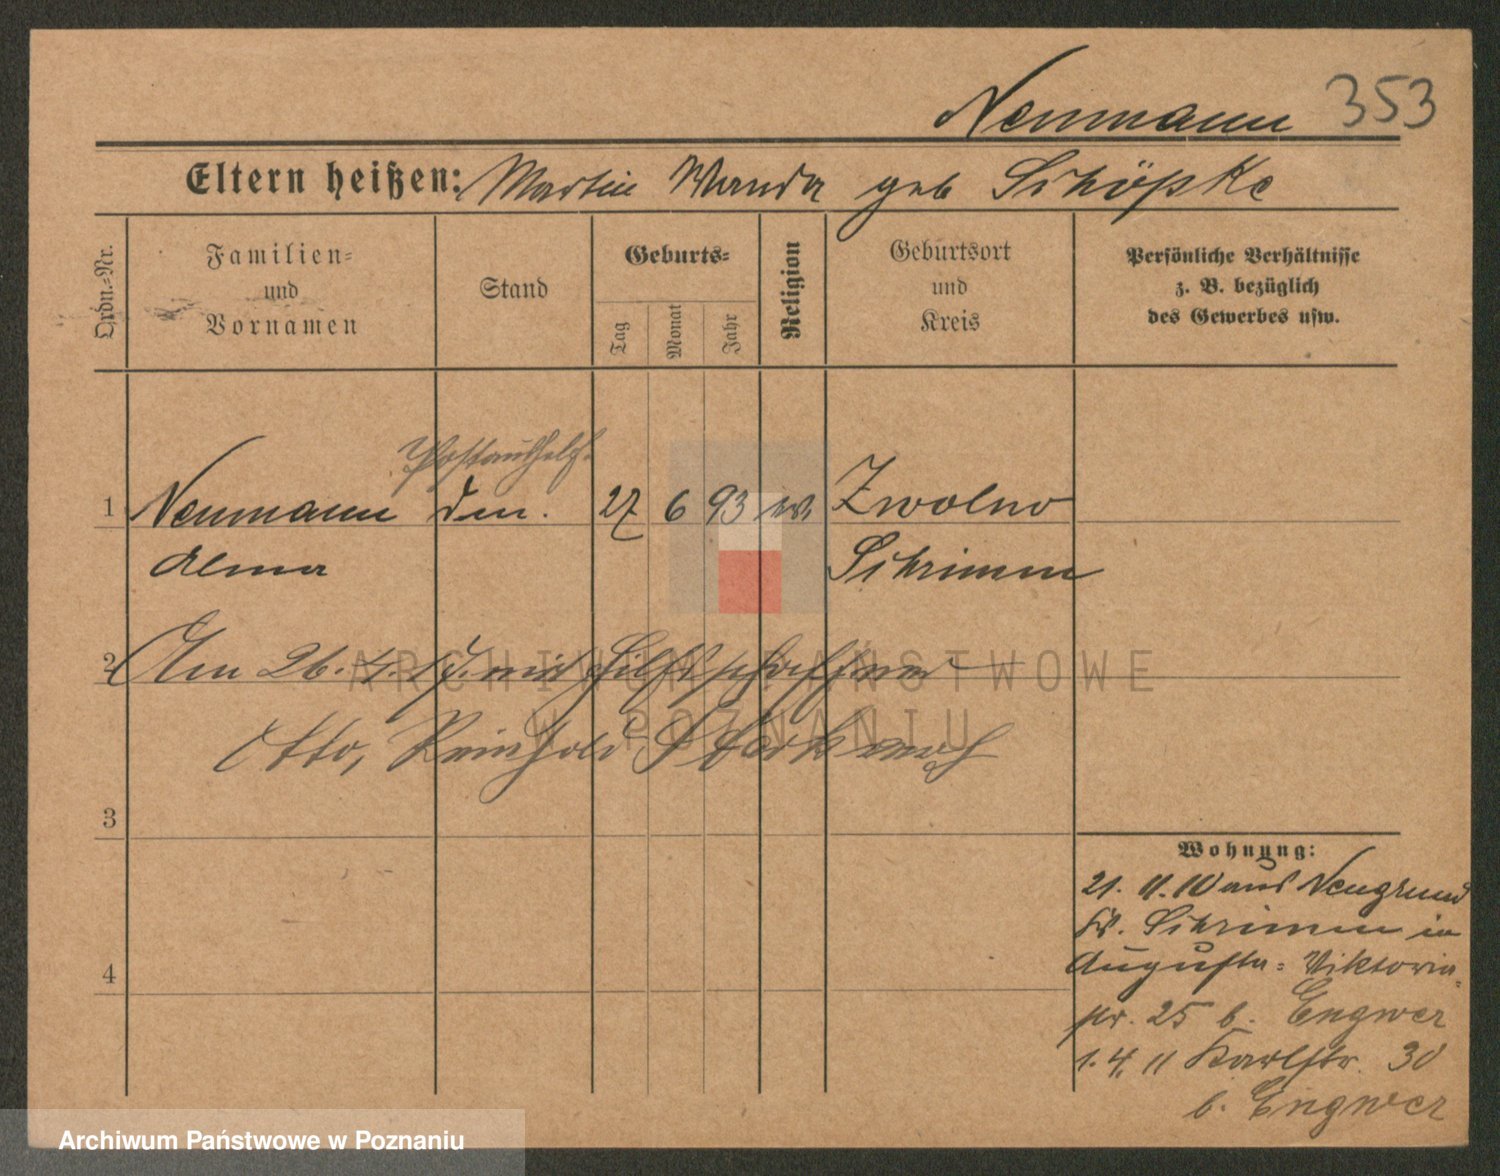 Neumann 353
Eltern heißen: Martin Wanda geb Schöpke
Ordn.-Nr.
Familien-
und
Vornamen
Stand
Geburts-
Tag
Monat
Jahr
Religion
Geburtsort
und
Kreis
Persönliche Verhältnisse
z. B. bezüglich
des Gewerbes usw.
Postaushelf.
1 Neumann 27 6 93 ev. Zwolno
Alma Schrimm
2 Am 26. 4. mit Hilfsschaffner
Otto, Reinhold
3
Wohnung:
21. 11. 10 aus Neugrund
Kr. Schrimm in
Augusta-Viktoria
4
str. 25 b. Engwer
1. 4. 11 Karlstr. 30
b. Engwer
ARCHIWUM PAŃSTWOWE
W POZNANIU
Archiwum Państwowe w Poznaniu